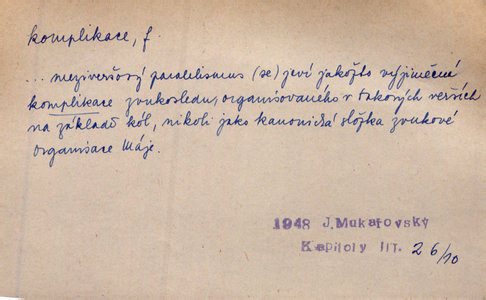 komplikace, f.
... meziveršový paralelismus (se) jeví jakožto výjimečná
komplikace zvukosledu, organisovaného v takových verších
na základě kól, nikoli jako kanonická složka zvukové
organisace Máje.
1948 J.Mukařovský
Kapitoly III. 26/10